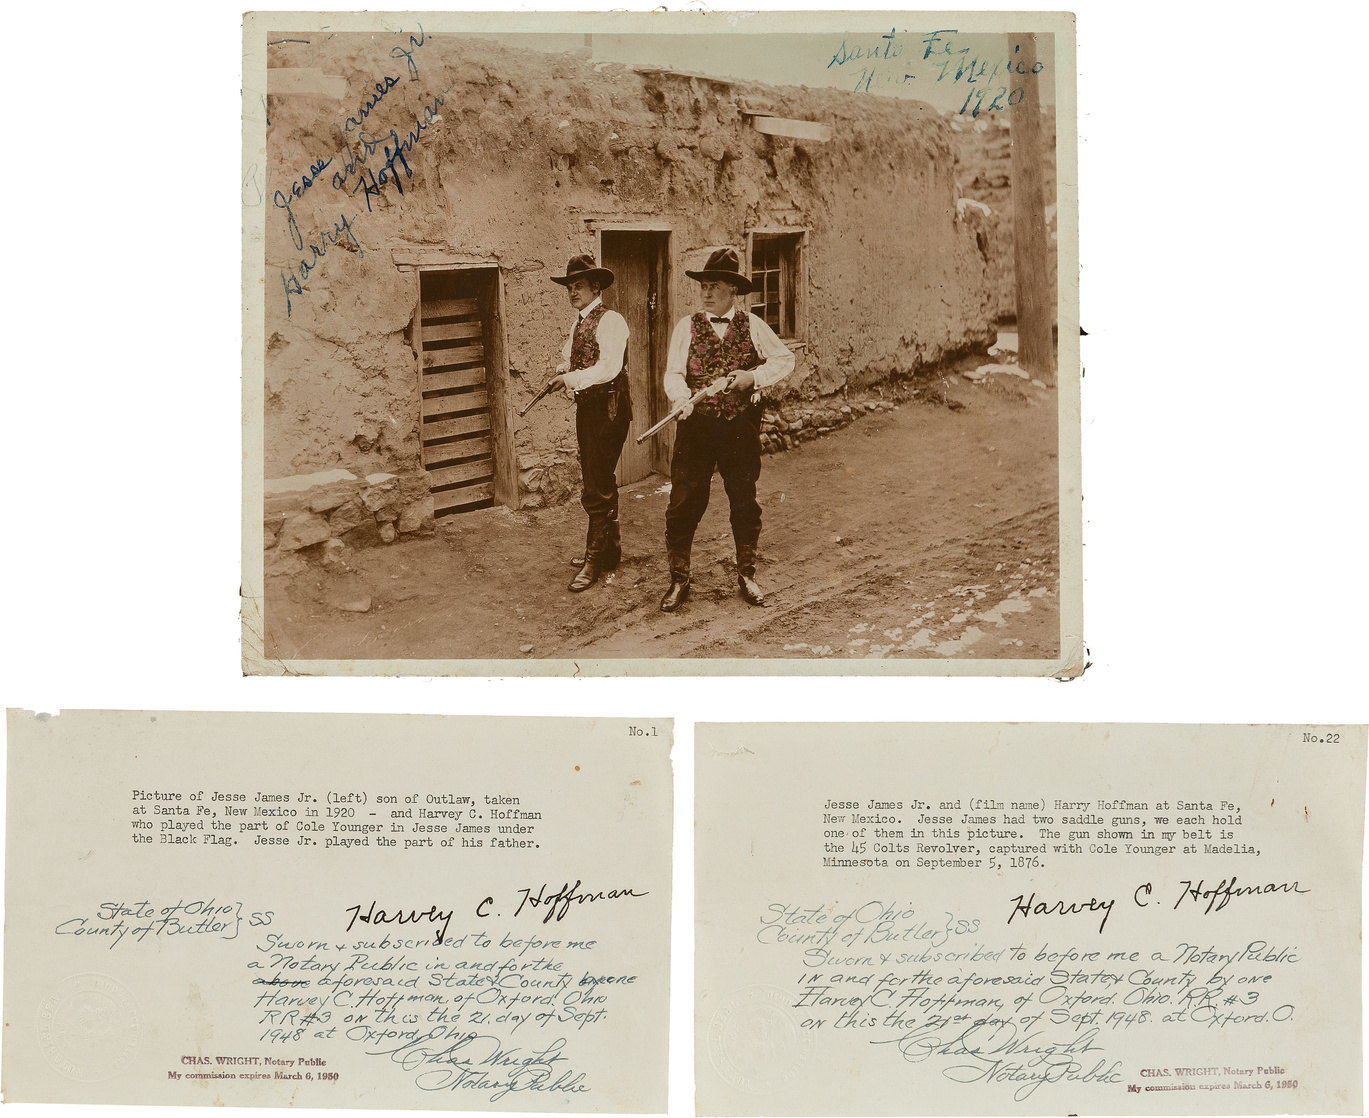 Jesse James Jr.
and
Harry Hoffman
Santa Fe
New Mexico
1920
No.1
Picture of Jesse James Jr. (left) son of Outlaw, taken
at Santa Fe, New Mexico in 1920 - and Harvey C. Hoffman
who played the part of Cole Younger in Jesse James under
the Black Flag. Jesse Jr. played the part of his father.
Harvey C. Hoffman
State of Ohio } SS
County of Butler
Sworn & subscribed to before me
a Notary Public in and for the
above aforesaid State & County by one
Harvey C. Hoffman, of Oxford. Ohio
R R #3 on this the 21. day of Sept.
1948 at Oxford, Ohio
Chas Wright
Notary Public
CHAS. WRIGHT, Notary Public
My commission expires March 6, 1950
No.22
Jesse James Jr. and (film name) Harry Hoffman at Santa Fe,
New Mexico. Jesse James had two saddle guns, we each hold
one of them in this picture. The gun shown in my belt is
the 45 Colts Revolver, captured with Cole Younger at Madelia,
Minnesota on September 5, 1876.
Harvey C. Hoffman
State of Ohio
County of Butler } SS
Sworn & subscribed to before me a Notary Public
in and for the aforesaid State & County by one
Harvey C. Hoffman, of Oxford. Ohio. R.R. #3
on this the 21st day of Sept. 1948. at Oxford. O.
Chas Wright
Notary Public
CHAS. WRIGHT, Notary Public
My commission expires March 6, 1950